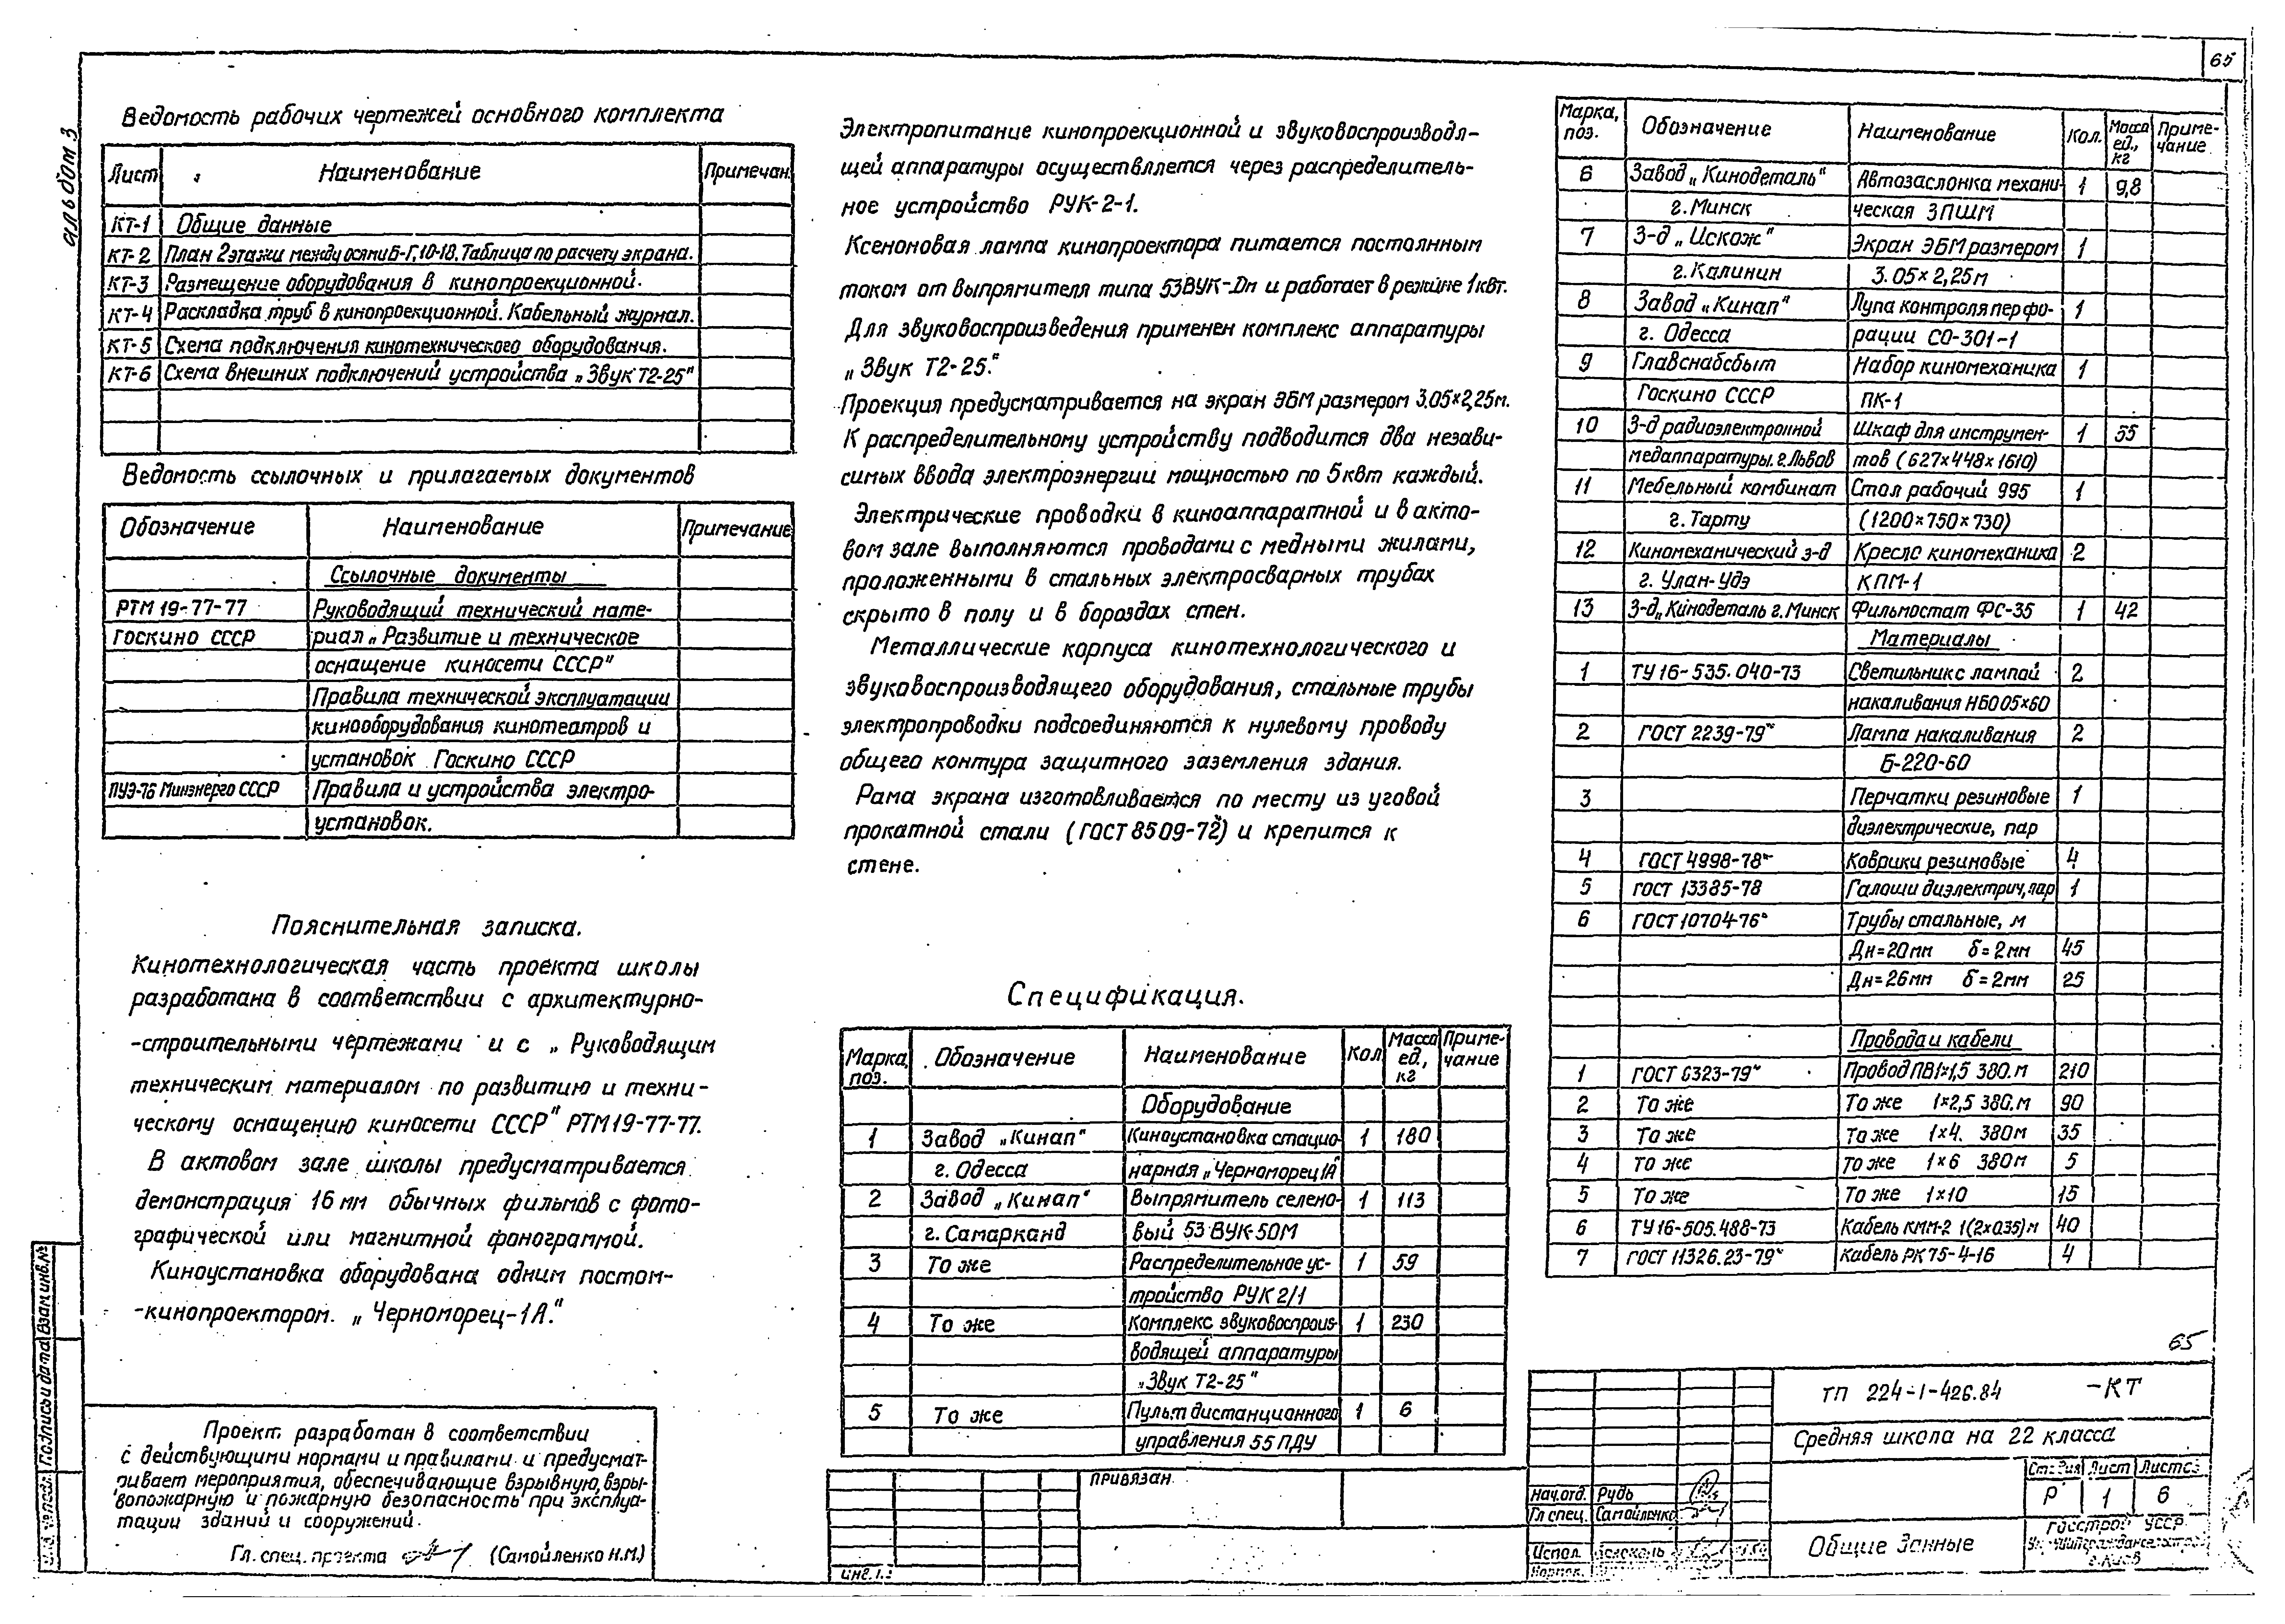 65
альбом 3
Ведомость рабочих чертежей основного комплекта
Лист Наименование Примечан.
КТ-1 Общие данные
КТ-2 План 2этажи между осями Б-Г, 10-18. Таблица по расчету экрана.
КТ-3 Размещение оборудования в кинопроекционной.
КТ-4 Раскладка труб в кинопроекционной. Кабельный журнал.
КТ-5 Схема подключения кинотехнического оборудования.
КТ-6 Схема внешних подключений устройства „Звук Т2-25"
Ведомость ссылочных и прилагаемых документов
Обозначение Наименование Примечание
Ссылочные документы
РТМ 19-77-77 Руководящий технический мате-
Госкино СССР риал „Развитие и техническое
оснащение киносети СССР"
Правила технической эксплуатации
кинооборудования кинотеатров и
установок Госкино СССР
ПУЭ-76 Минэнерго СССР Правила и устройства электро-
установок.
Пояснительная записка.
Кинотехнологическая часть проекта школы
разработана в соответствии с архитектурно-
-строительными чертежами и с „Руководящим
техническим материалом по развитию и техни-
ческому оснащению киносети СССР" РТМ19-77-77.
В актовом зале школы предусматривается
демонстрация 16мм обычных фильмов с фото-
графической или магнитной фонограммой.
Киноустановка оборудована одним постом-
-кинопроектором. „Черноморец-1А."
Проект разработан в соответствии
с действующими нормами и правилами и предусмат-
ривает мероприятия, обеспечивающие взрывную, взры-
вопожарную и пожарную безопасность при эксплуа-
тации зданий и сооружений.
Гл. спец. проекта (Самойленко Н.М.)
Взам.инв.№
Подпись и дата
Электропитание кинопроекционной и звуковоспроизводя-
щей аппаратуры осуществляется через распределитель-
ное устройство РУК-2-1.
Ксеноновая лампа кинопроектора питается постоянным
током от выпрямителя типа 53ВУК-Dм и работает в режиме 1квт.
Для звуковоспроизведения применен комплекс аппаратуры
„Звук Т2-25."
Проекция предусматривается на экран ЭБМ размером 3.05×2,25м.
К распределительному устройству подводится два незави-
симых ввода электроэнергии мощностью по 5квт каждый.
Электрические проводки в киноаппаратной и в акто-
вом зале выполняются проводами с медными жилами,
проложенными в стальных электросварных трубах
скрыто в полу и в бороздах стен.
Металлические корпуса кинотехнологического и
звуковоспроизводящего оборудования, стальные трубы
электропроводки подсоединяются к нулевому проводу
общего контура защитного заземления здания.
Рама экрана изготовливается по месту из уговой
прокатной стали (ГОСТ 8509-72) и крепится к
стене.
Спецификация.
Марка, поз. Обозначение Наименование Кол Масса ед., кг Приме-чание
Оборудование
1 Завод „Кинап" Киноустановка стацио- 1 180
г. Одесса нарная „Черноморец1А"
2 Завод „Кинап" Выпрямитель селено- 1 113
г. Самарканд вый 53 ВУК-50М
3 То же Распределительное ус- 1 59
тройство РУК 2/1
4 То же Комплекс звуковоспроиз- 1 230
водящей аппаратуры
„Звук Т2-25"
5 То же Пульт дистанционного 1 6
управления 55 ПДУ
Привязан
Инв.
Марка, поз. Обозначение Наименование Кол. Масса ед., кг Приме-чание
6 Завод „Кинодеталь" Автозаслонка механи- 1 9,8
г. Минск ческая ЗПШМ
7 З-д „Искож" Экран ЭБМ размером 1
г. Калинин 3.05×2,25м
8 Завод „Кинап" Лупа контроля перфо- 1
г. Одесса рации СО-301-1
9 Главснабсбыт Набор киномеханика 1
Госкино СССР ПК-1
10 З-д радиоэлектронной Шкаф для инструмен- 1 55
медаппаратуры. г. Львов тов (627×448×1610)
11 Мебельный комбинат Стол рабочий 995 1
г. Тарту (1200×750×730)
12 Киномеханический з-д Кресло киномеханика 2
г. Улан-Удэ КПМ-1
13 З-д „Кинодеталь г. Минск Фильмостат ФС-35 1 42
Материалы
1 ТУ 16-535.040-73 Светильник с лампой 2
накаливания НБО05×60
2 ГОСТ 2239-79* Лампа накаливания 2
Б-220-60
3 Перчатки резиновые 1
диэлектрические, пар
4 ГОСТ 4998-78* Коврики резиновые 4
5 ГОСТ 13385-78 Галоши диэлектрич, пар 1
6 ГОСТ 10704-76* Трубы стальные, м
Дн=20мм б=2мм 45
Дн=26мм б=2мм 25
Провода и кабели
1 ГОСТ 6323-79* Провод ПВ1×1,5 380.м 210
2 То же То же 1×2,5 380.м 90
3 То же То же 1×4. 380м 35
4 То же То же 1×6 380м 5
5 То же То же 1×10 15
6 ТУ 16-505.488-73 Кабель КММ-2 1(2×035)м 40
7 ГОСТ 11326.23-79* Кабель РК 75-4-16 4
65
ТП 224-1-426.84 -КТ
Средняя школа на 22 класса
Стадия Лист Листов
Р 1 6
Нач.отд. Рудь
Гл спец. Самойленко
Испол.
Общие данные
Госстрой УССР
г. Киев